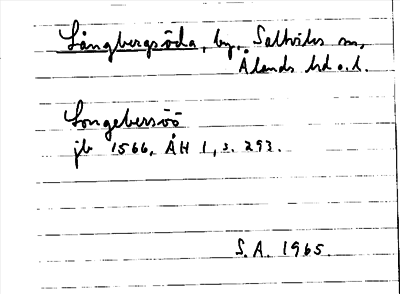 Långbergsöda, by, Saltviks sn,
Ålands hd o. l.
Longebersöö
jb 1566, ÅH 1, s. 293.
S.A. 1965.